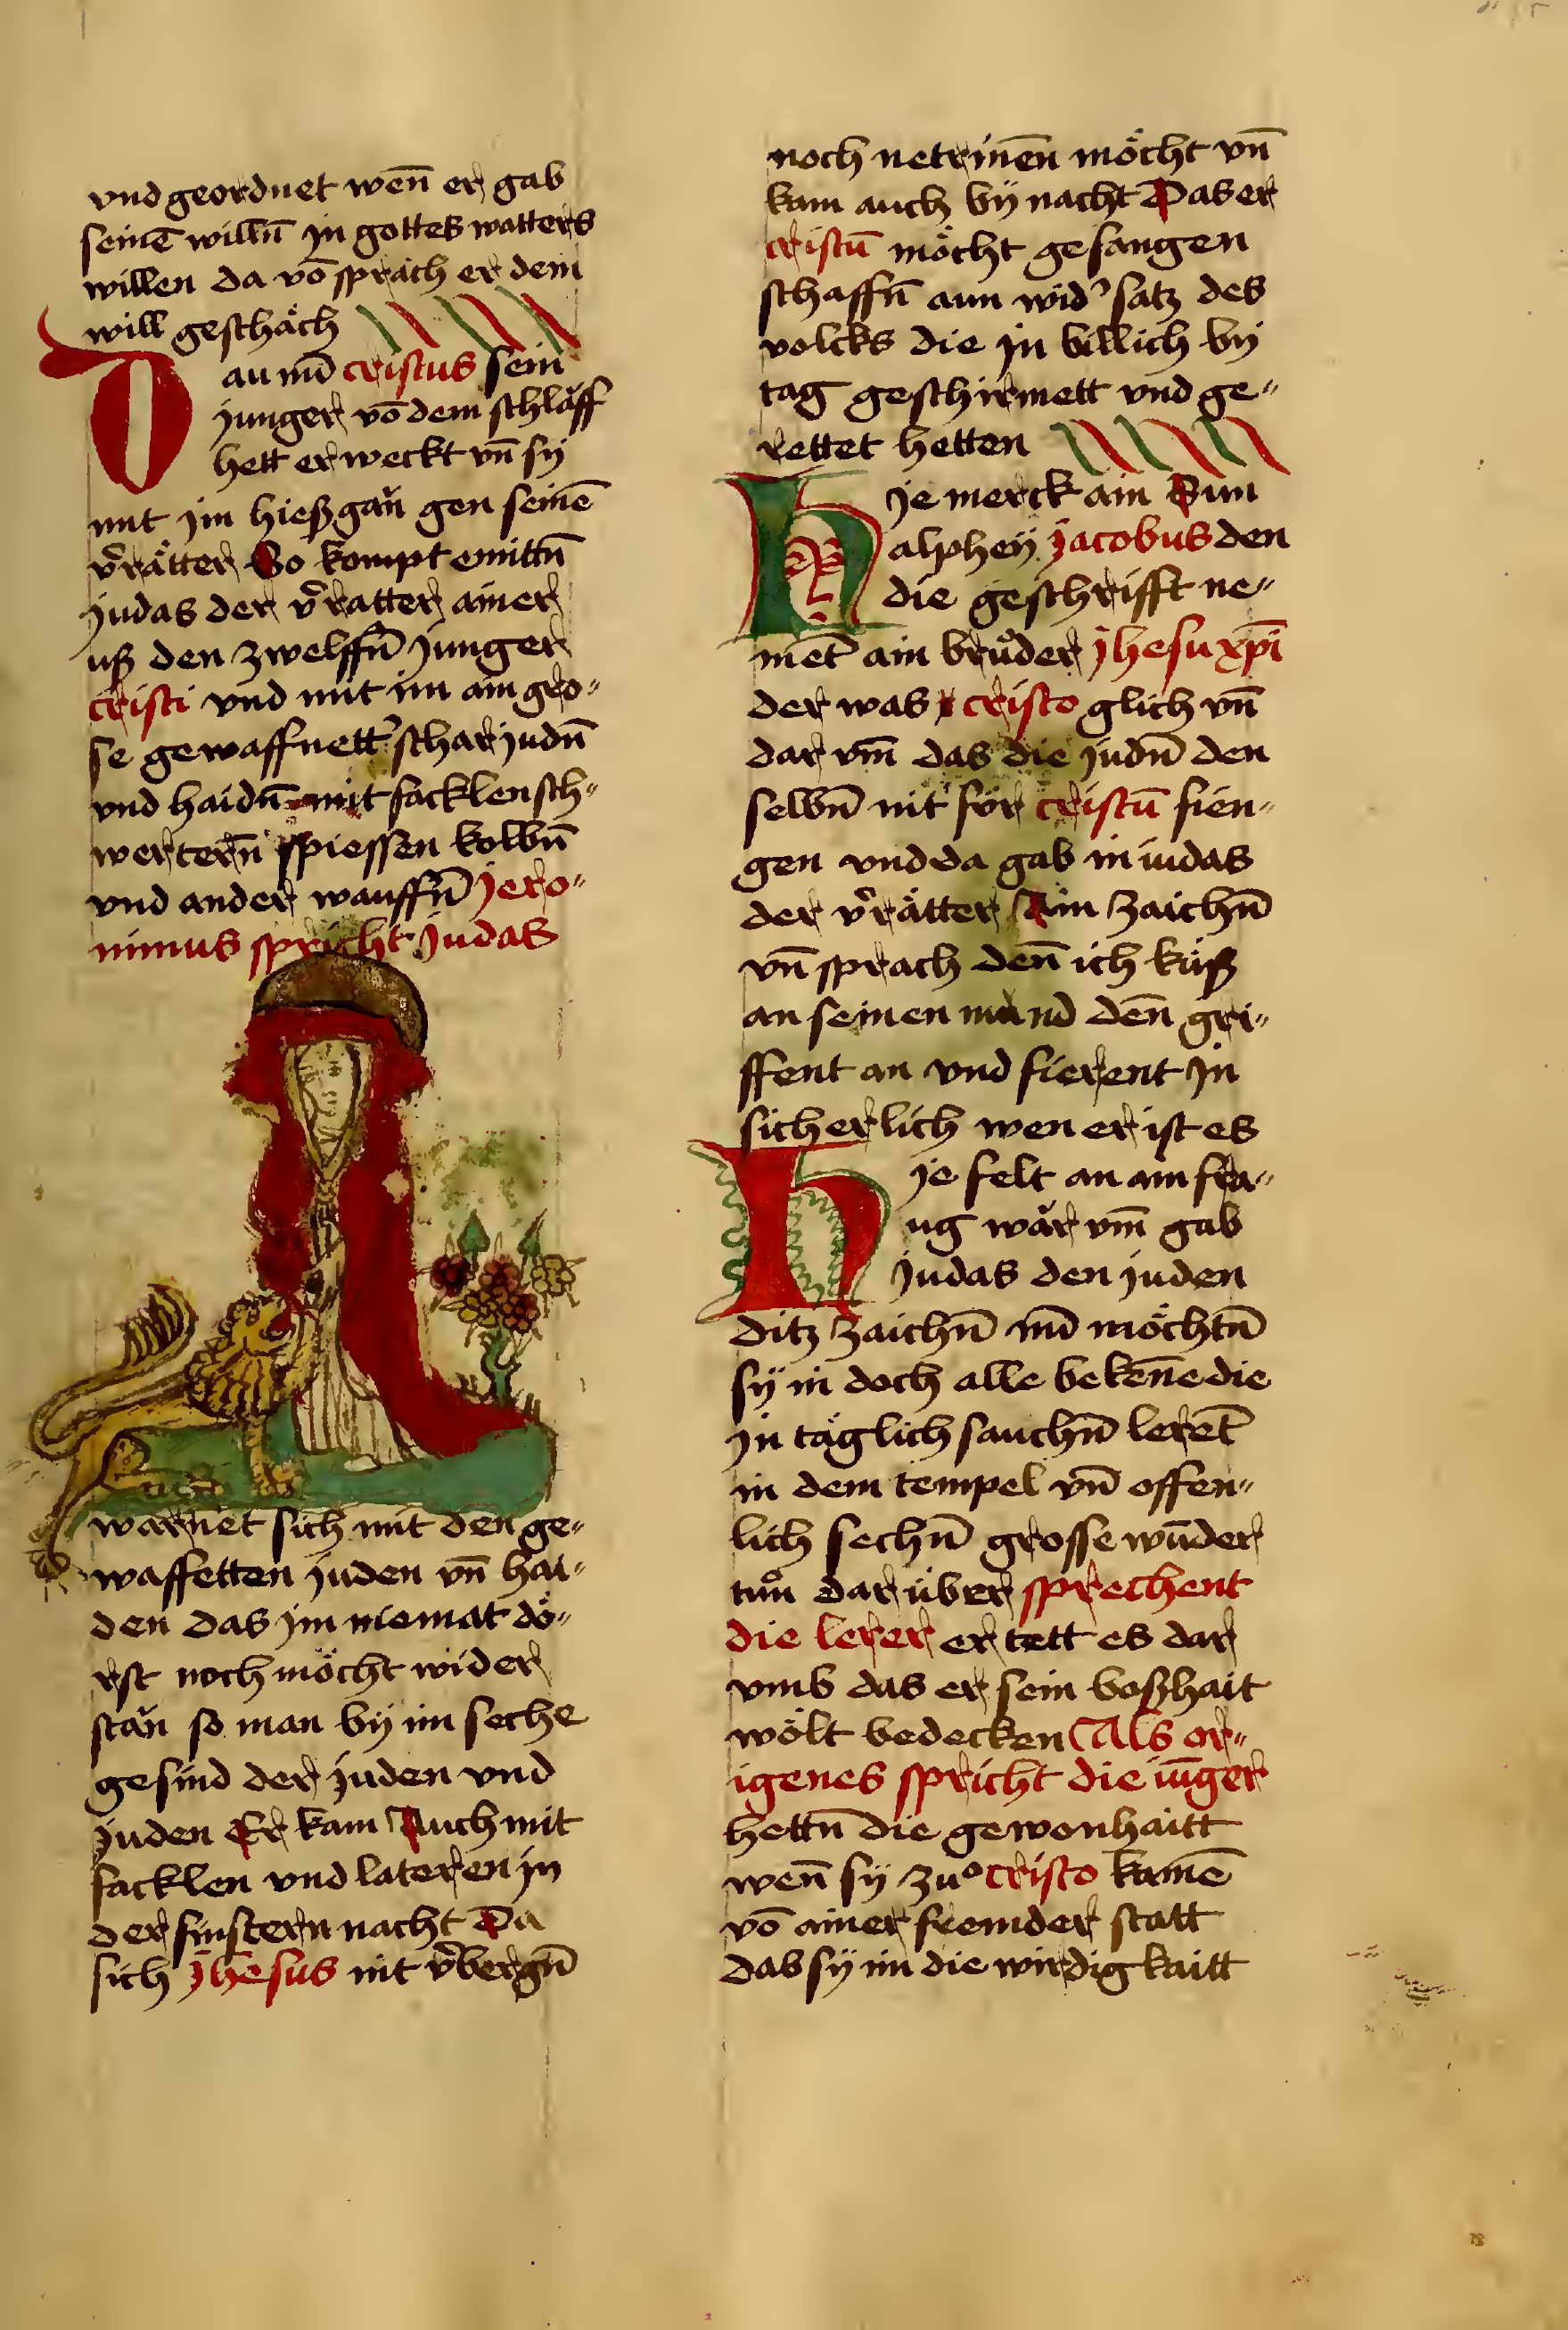 vnd geordnet wen̄ er gab
seinē willn̄ jn gottes watters
willen da vō sprach er dem
will geschäch
Dau nū cristus sein
junger vō dem schläff
hett erweckt vn̄ sy
mit jm hieß gän gen seinē
v̄rätter So kompt emittn̄
judas der v̄ratter ainer
uß den zwelffn̄ junger
cristi vnd mit im ain gro„
se gewaffnett schar judn̄
vnd haidn̄ mit facklen sch„
wertern̄ spiessen kolbn̄
vnd ander wauffn̄ jero„
nimus spricht judas
warnet sich mit den ge„
waffetten juden vn̄ hai„
den das jm niemat dö„
rst noch möcht wider
stän so man by im seche
gesind der juden vnd
juden Er kam Auch mit
facklen vnd lateren jn
der finstern nacht Da
sich jhesus nit v̄bergn̄
noch netrinen̄ möcht vn̄
kam auch bÿ nacht Das er
cristū möcht gefangen
schaffn̄ aun wid' satz des
volcks die jn billich by
tag geschirmett vnd ge„
rettet hetten
Hje merck ain Sun
alpheÿ jacobus den
die geschrifft ne„
met̄ ain brůder jhesu xp̄i
der was cristo glich vn̄
dar vm̄ das die judn̄ den
selbn̄ nit för cristū fien„
gen vnd da gab in iudas
der v̄rätter Ain zaichn̄
vn̄ sprach den̄ ich küß
an seinen mund den̄ gri„
ffent an vnd fierent jn
sicherlich wen er ist es
Hje felt an ain fra„
ug wär vm̄ gab
judas den juden
ditz zaichn̄ nū möchtn̄
sÿ in doch alle beken̄e die
jn täglich sauchn̄ leret̄
in dem tempel vn̄ offen„
lich sechn̄ grosse wūder
tůn dar über sprechent
die lerer er tett es dar
vmb das er sein boßhait
wölt bedecken Als or„
igenes spricht die iūger
hettn̄ die gewonhaitt
wen̄ sÿ zuͦ cristo kamē
vō ainer fremder statt
das sÿ im die wirdigkaitt